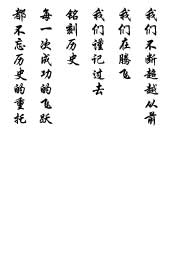 我们不断超越从前
我们在腾飞
我们谨记过去
铭刻历史
每一次成功的飞跃
都不忘历史的重托